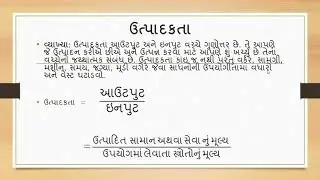 ઉત્પાદકતા
• વ્યાખ્યા: ઉત્પાદકતા આઉટપુટ અને ઇનપુટ વચ્ચે ગુણોત્તર છે. તે આપણે
જે ઉત્પાદન કરીએ છીએ અને ઉત્પન્ન કરવા માટે આપણું શું છે તેના
વચ્ચેનો જથ્થાત્મક સંબંધ છે. ઉત્પાદકતા કાંઇ જ નથી પરંતુ વર્કર, સામગ્રી,
મશીન, સમય, જગ્યા, મૂડી વગેરે જેવા સાધનોની ઉપયોગીતામાં વધારો
અને વેસ્ટ ઘટાડવો.
• ઉત્પાદકતા = આઉટપુટ
ઇનપુટ
= ઉત્પાદિત સામાન અથવા સેવા નું મૂલ્ય
ઉપયોગમાં લેવાતા સ્ત્રોતોનું મૂલ્ય